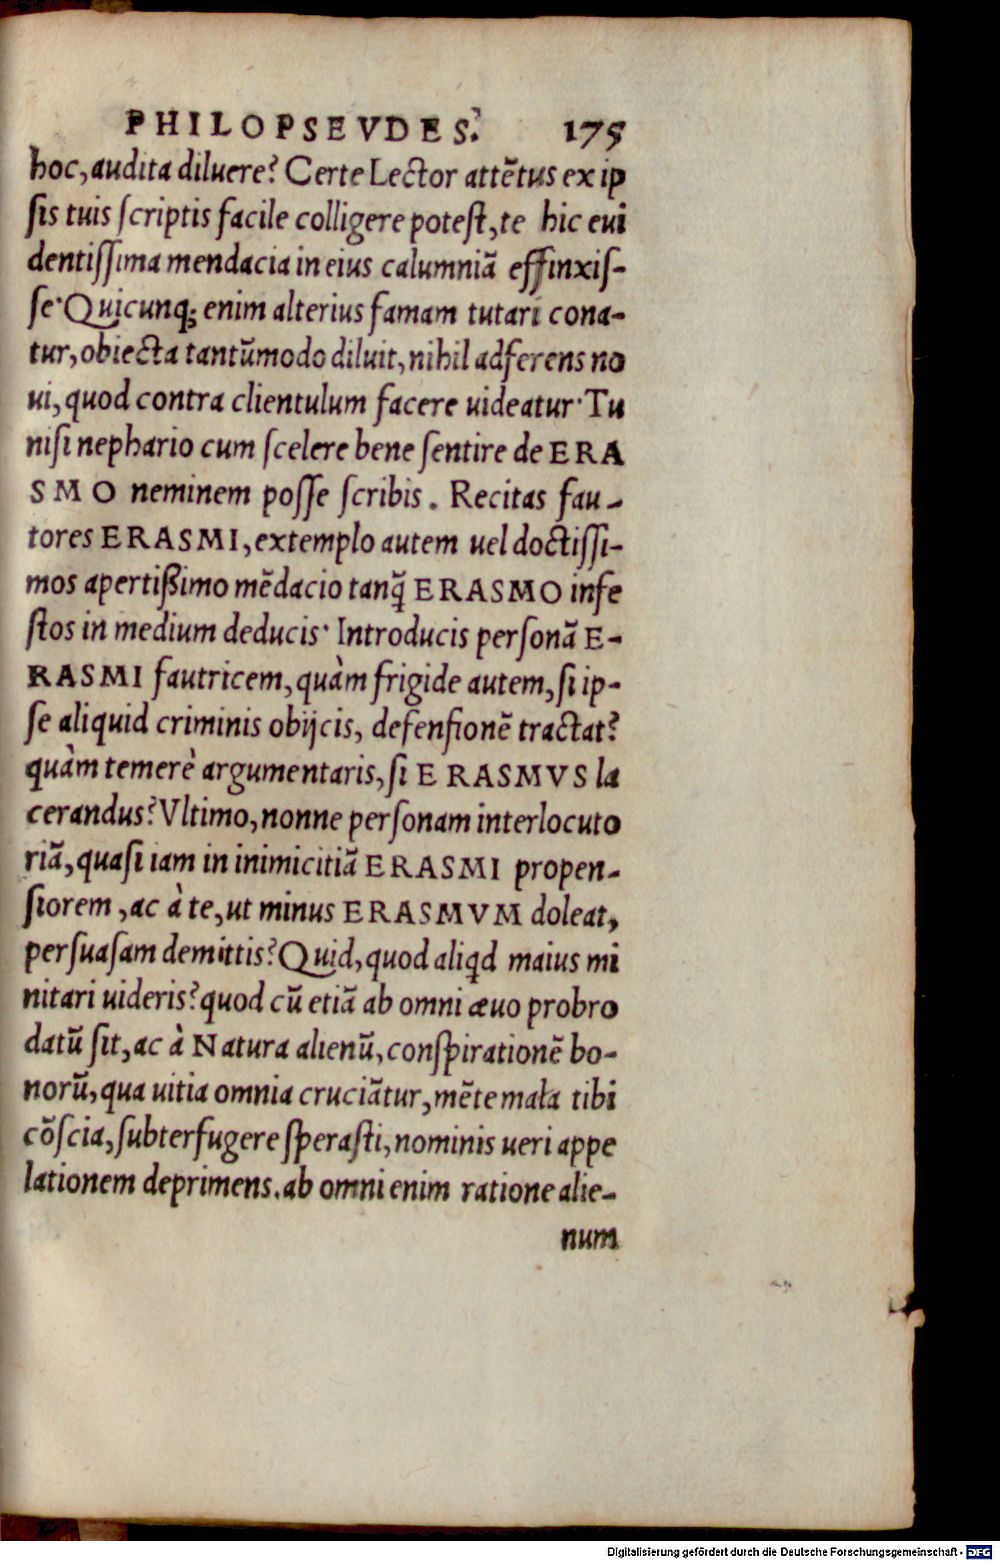 PHILOPSEVDES. 175
hoc, audita diluere? Certe Lector attẽtus ex ip
ſis tuis ſcriptis facile colligere poteſt, te hic eui
dentiſſima mendacia in eius calumniã effinxiſ-
ſe· Quicunq; enim alterius famam tutari cona-
tur, obiecta tantũmodo diluit, nihil adferens no
ui, quod contra clientulum facere uideatur· Tu
niſi nephario cum ſcelere bene ſentire de ERA
SMO neminem poſſe ſcribis. Recitas fau-
tores ERASMI, extemplo autem uel doctiſſi-
mos apertißimo mẽdacio tanq̃ ERASMO infe
ſtos in medium deducis· Introducis perſonã E-
RASMI fautricem, quàm frigide autem, ſi ip-
ſe aliquid criminis obijcis, defenſionẽ tractat?
quàm temerè argumentaris, ſi ERASMVS la
cerandus? Vltimo, nonne perſonam interlocuto
riã, quaſi iam in inimicitiã ERASMI propen-
ſiorem, ac à te, ut minus ERASMVM doleat,
perſuaſam demittis? Quid, quod aliqd maius mi
nitari uideris? quod cũ etiã ab omni æuo probro
datũ ſit, ac à Natura alienũ, conſpirationẽ bo-
norũ, qua uitia omnia cruciãtur, mẽte mala tibi
cõſcia, ſubterfugere ſperaſti, nominis ueri appe
lationem deprimens. ab omni enim ratione alie-
num
Digitalisierung gefördert durch die Deutsche Forschungsgemeinschaft - DFG